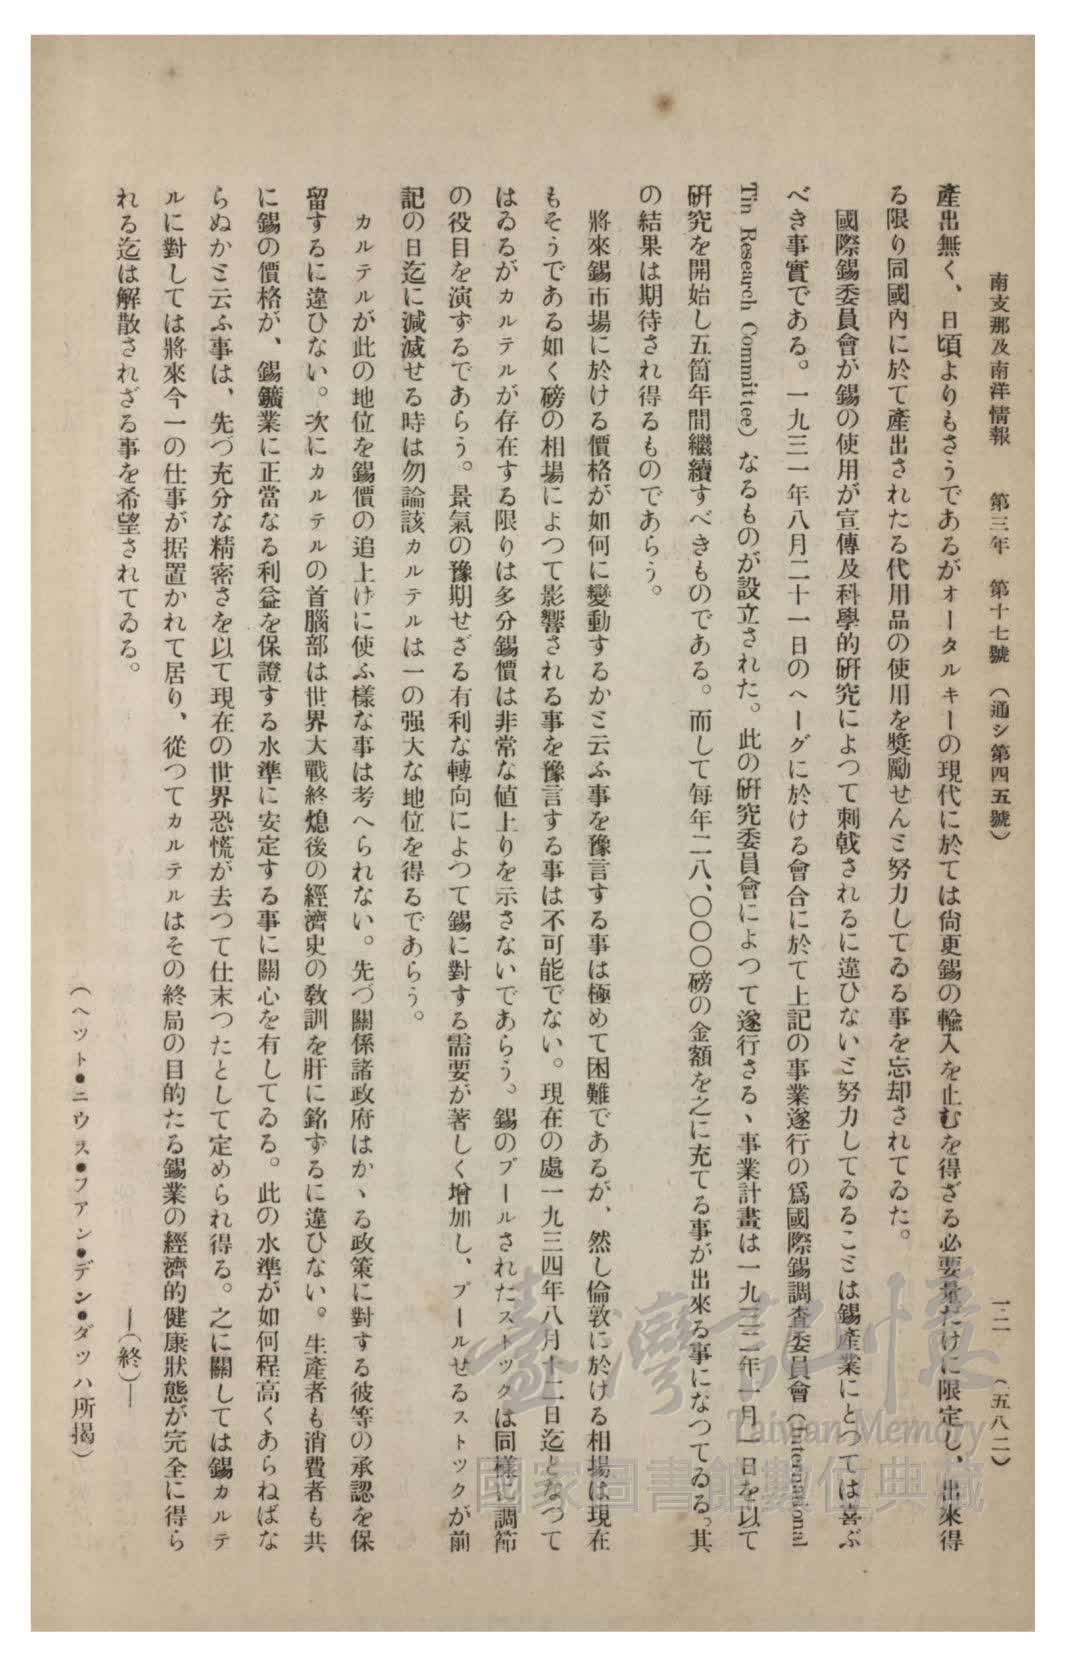 南支那及南洋情報　第三年　第十七號　（通シ第四五號）　一二　（五八二）
產出無く、日頃よりもさうであるがオータルキーの現代に於ては尙更錫の輸入を止むを得ざる必要量だけに限定し、出來得
る限り同國內に於て產出されたる代用品の使用を獎勵せんと努力してゐる事を忘却されてゐた。
國際錫委員會が錫の使用が宣傳及科學的硏究によつて刺戟されるに違ひないと努力してゐることは錫產業にとつては喜ぶ
べき事實である。一九三一年八月二十一日のヘーグに於ける會合に於て上記の事業遂行の爲國際錫調査委員會（International
Tin Research Committee）なるものが設立された。此の硏究委員會によつて遂行さるゝ事業計畫は一九三二年一月一日を以て
硏究を開始し五箇年間繼續すべきものである。而して每年二八、〇〇〇磅の金額を之に充てる事が出來る事になつてゐる。其
の結果は期待され得るものであらう。
將來錫市場に於ける價格が如何に變動するかと云ふ事を豫言する事は極めて困難であるが、然し倫敦に於ける相場は現在
もそうである如く磅の相場によつて影響される事を豫言する事は不可能でない。現在の處一九三四年八月十二日迄となつて
はゐるがカルテルが存在する限りは多分錫價は非常な値上りを示さないであらう。錫のプールされたストツクは同樣に調節
の役目を演ずるであらう。景氣の豫期せざる有利な轉向によつて錫に對する需要が著しく增加し、プールせるストツクが前
記の日迄に減滅せる時は勿論該カルテルは一の强大な地位を得るであらう。
カルテルが此の地位を錫價の追上げに使ふ樣な事は考へられない。先づ關係諸政府はかゝる政策に對する彼等の承認を保
留するに違ひない。次にカルテルの首腦部は世界大戰終熄後の經濟史の敎訓を肝に銘ずるに違ひない。生產者も消費者も共
に錫の價格が、錫鑛業に正當なる利益を保證する水準に安定する事に關心を有してゐる。此の水準が如何程高くあらねばな
らぬかと云ふ事は、先づ充分な精密さを以て現在の世界恐慌が去つて仕末つたとして定められ得る。之に關しては錫カルテ
ルに對しては將來今一の仕事が据置かれて居り、從つてカルテルはその終局の目的たる錫業の經濟的健康狀態が完全に得ら
れる迄は解散されざる事を希望されてゐる。
―（終）―
（ヘツト●ニウス●フアン●デン●ダツハ所揭）
臺灣記憶
Taiwan Memory
國家圖書館數位典藏